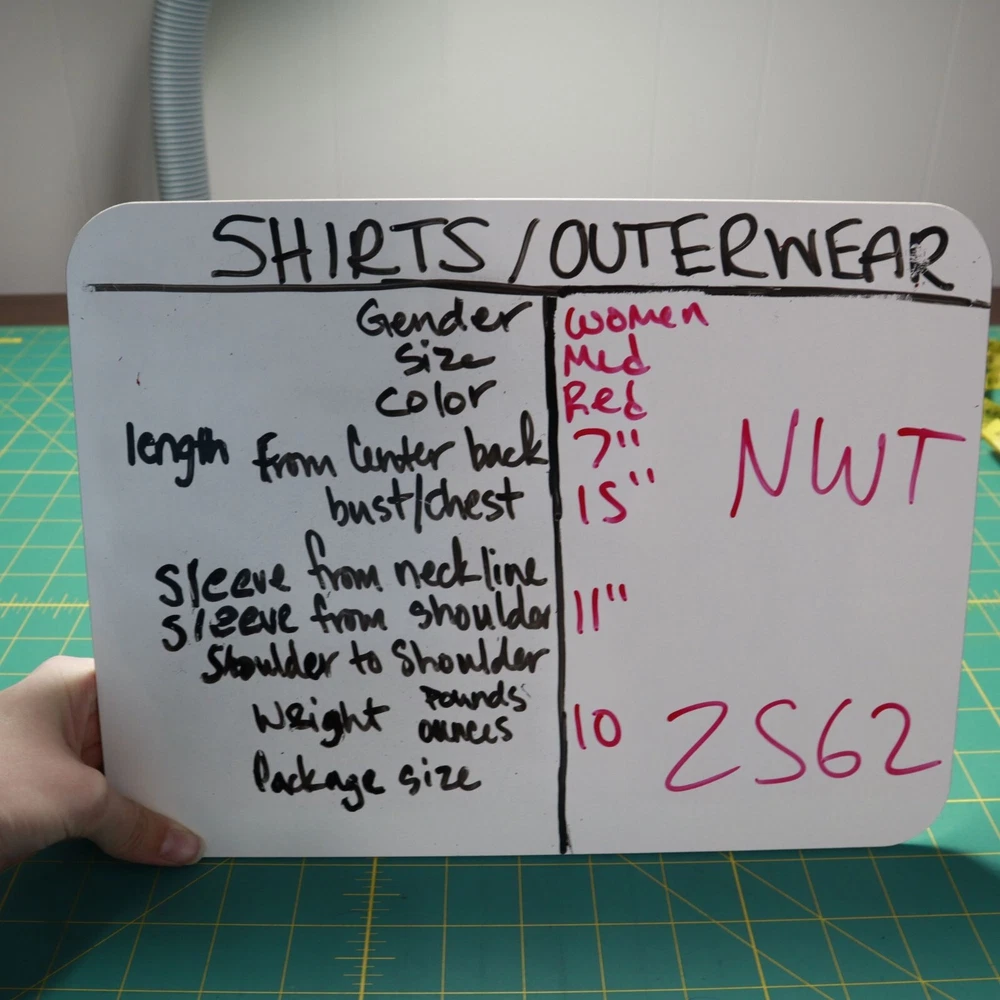 SHIRTS/OUTERWEAR
Gender women
Size Med
Color Red
length from Center back 7"
NWT
bust/chest 15"
Sleeve from neckline
Sleeve from shoulder 11"
Shoulder to Shoulder
Weight Pounds
ounces 10
ZS62
Package size